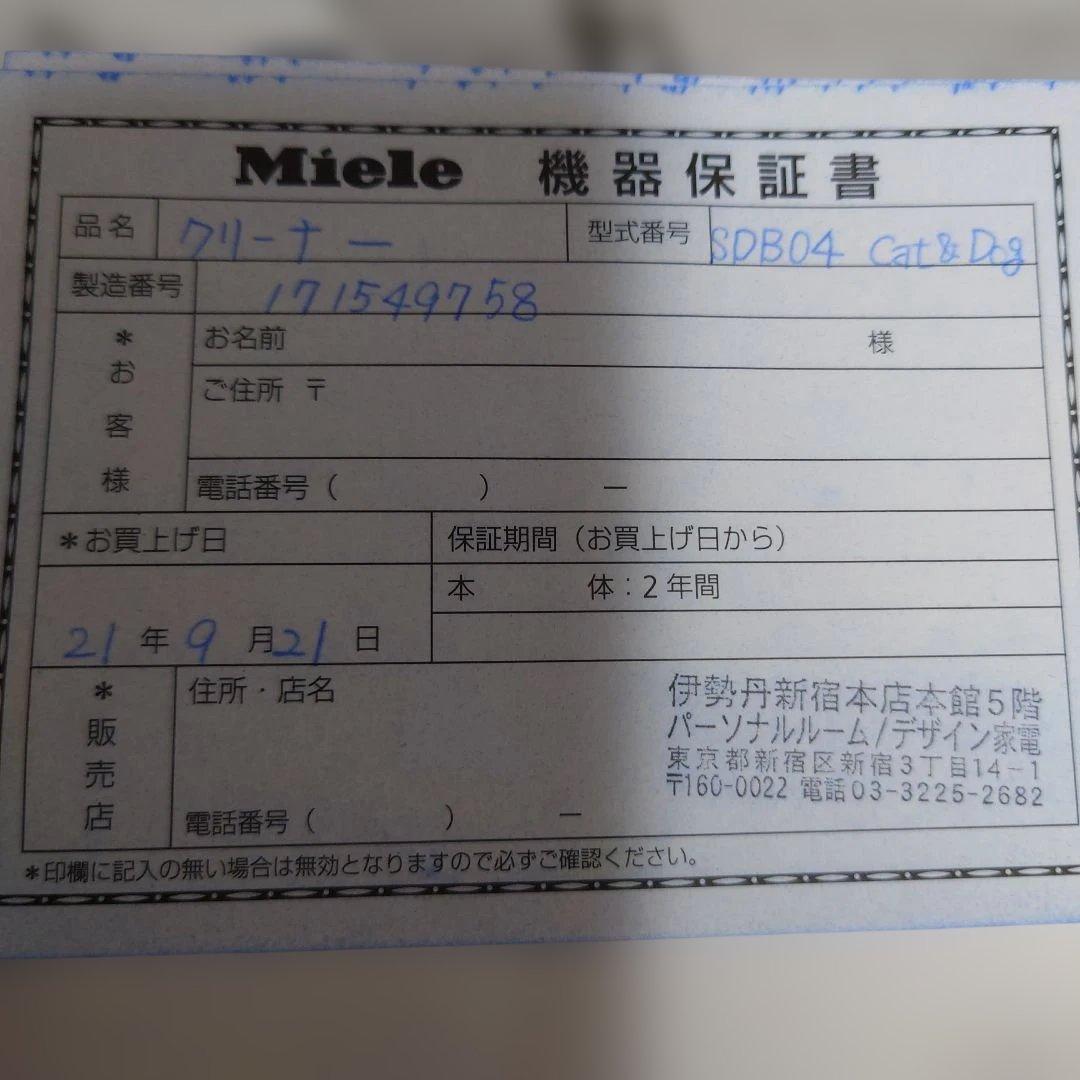 Miele 機器保証書
品名 クリーナー 型式番号 SDB04 Cat&Dog
製造番号 171549758
*お客様
お名前 様
ご住所 〒
電話番号( ) ー
*お買上げ日 保証期間(お買上げ日から)
本 体:2年間
21年9月21日
*販売店
住所・店名
伊勢丹新宿本店本館5階
パーソナルルーム/デザイン家電
東京都新宿区新宿3丁目14-1
〒160-0022 電話03-3225-2682
電話番号( ) ー
*印欄に記入の無い場合は無効となりますので必ずご確認ください。